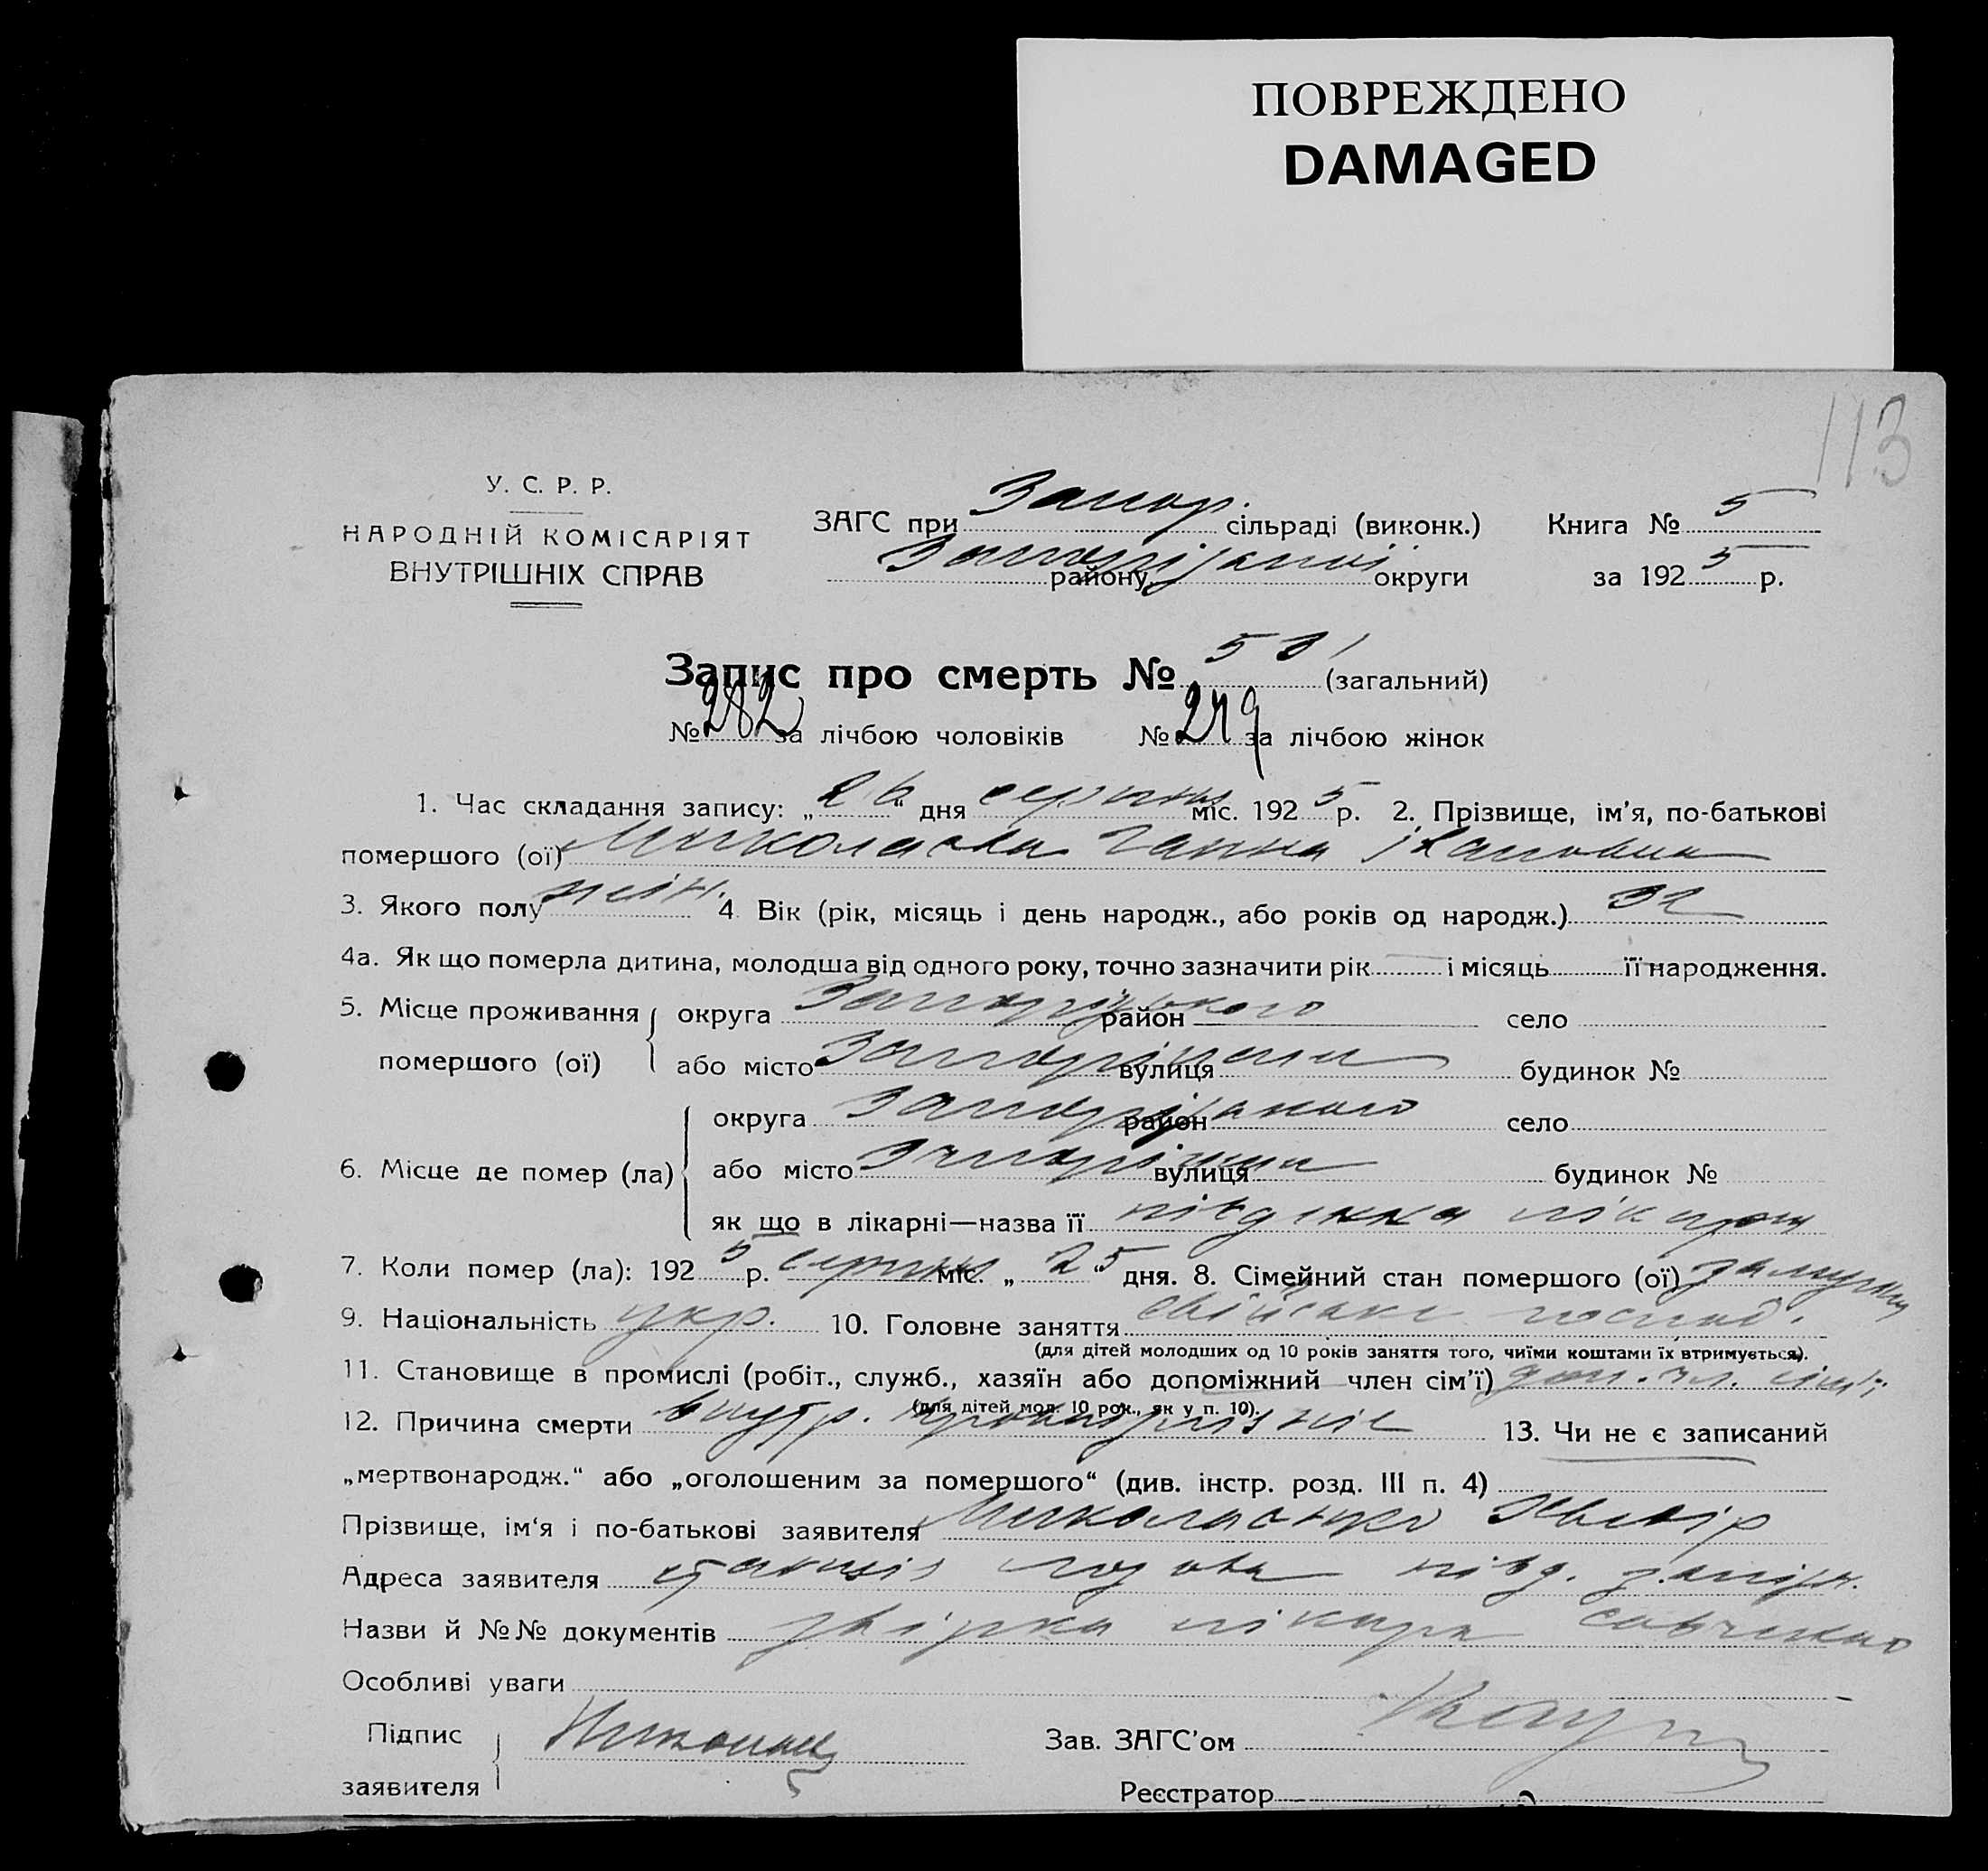 ПОВРЕЖДЕНО
DAMAGED
113
У. С. Р. Р.
НАРОДНІЙ КОМІСАРІЯТ
ВНУТРІШНІХ СПРАВ
ЗАГС при Запор. сільраді (виконк.) Книга № 5
району Запоріжської округи за 192 5 р.
Запис про смерть № 531 (загальний)
№ 282 за лічбою чоловіків № 249 за лічбою жінок
1. Час складання запису: „ 26 “ дня серпня міс. 192 5 р. 2. Прізвище, ім’я, по-батькові
помершого (ої) Ганна Івановна
3. Якого полу жін. 4 Вік (рік, місяць і день народж., або років од народж.) 32
4а. Як що померла дитина, молодша від одного року, точно зазначити рік і місяць її народження.
5. Місце проживання помершого (ої) округа район село
або місто вулиця будинок №
6. Місце де помер (ла) округа район село
або місто вулиця будинок №
як що в лікарні—назва її південна лікарня
7. Коли помер (ла): 192 5 р. серпня міс. „ 25 “ дня. 8. Сімейний стан помершого (ої) замужня
9. Національність укр. 10. Головне заняття господ.
(для дітей молодших од 10 років заняття того, чиїми коштами їх втримується).
11. Становище в промислі (робіт., служб., хазяїн або допоміжний член сім’ї) доп. чл. сім'ї
(для дітей мол. 10 рок., як у п. 10).
12. Причина смерти внутр. 13. Чи не є записаний
„мертвонародж.“ або „оголошеним за помершого“ (див. інстр. розд. III п. 4)
Прізвище, ім‘я і по-батькові заявителя
Адреса заявителя станція півд.
Назви й №№ документів лікаря Савченко
Особливі уваги
Підпис заявителя Зав. ЗАГС’ом
Реєстратор